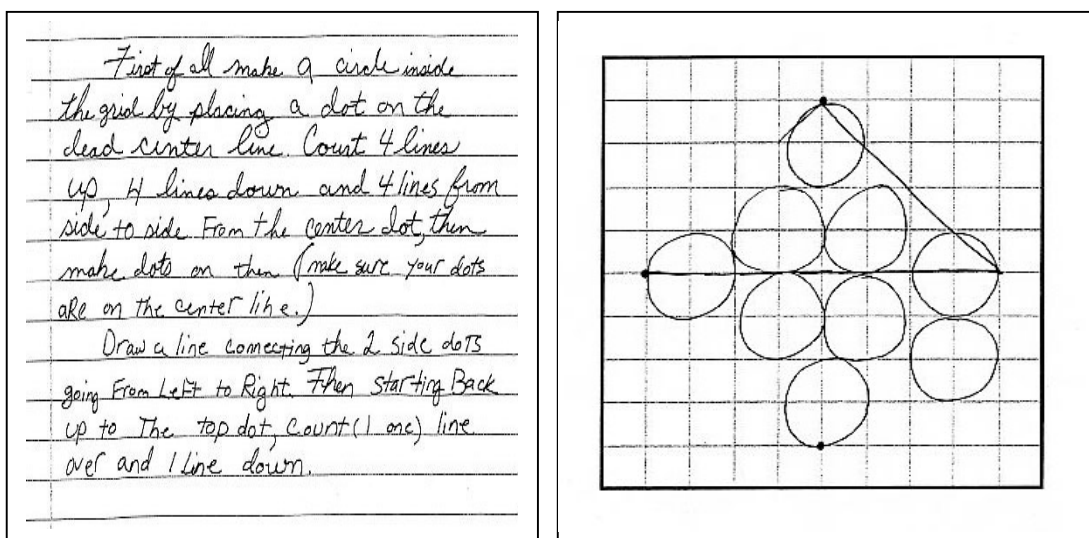 First of all make a circle inside
the grid by placing a dot on the
dead center line. Count 4 lines
up, 4 lines down and 4 lines from
side to side From the center dot, then
make dots on then (make sure your dots
aRe on the center line.)
Draw a line connecting the 2 side doTS
going From Left to Right. Then starting Back
up to The top dot, count (1 one) line
over and 1 Line down.